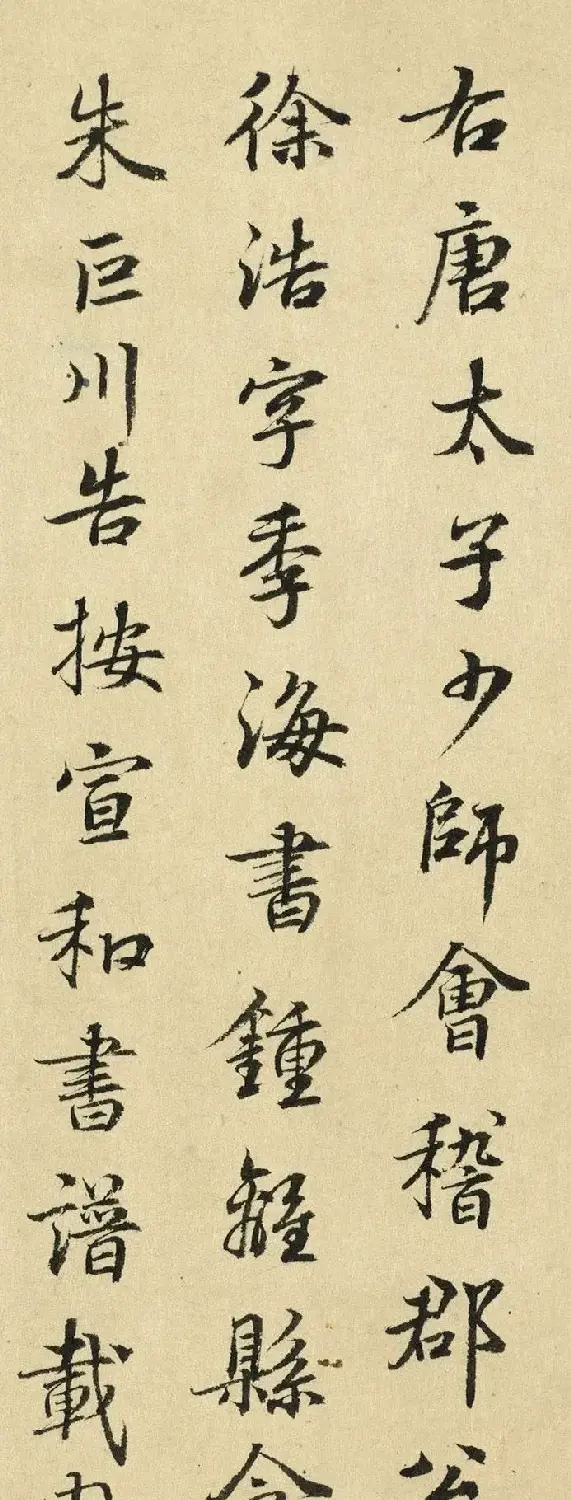 右唐太子少師會稽郡公
徐浩字季海書鍾離縣令
朱巨川告按宣和書譜載